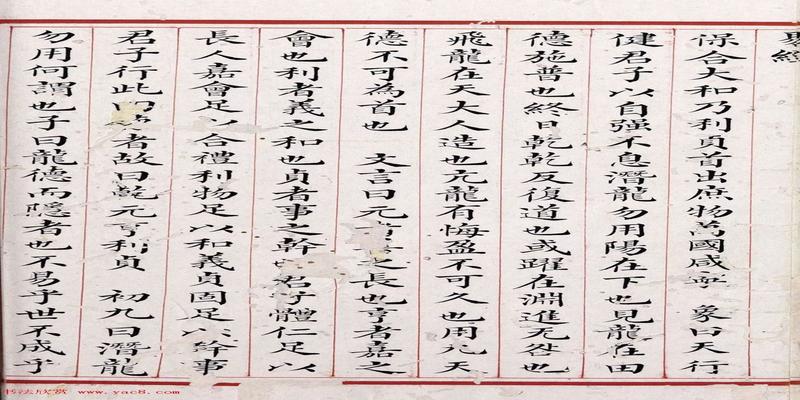 易經
保合大和乃利貞首出庶物萬國咸寧 象曰天行
健君子以自强不息潛龍勿用陽在下也見龍在田
德施普也終日乾乾反復道也或躍在淵進无咎也
飛龍在天大人造也亢龍有悔盈不可久也用九天
德不可為首也 文言曰元之長也亨者嘉之
會也利者義之和也貞者事之幹也君子體仁足以
長人嘉會足以合禮利物足以和義貞固足以幹事
君子行此四者故曰乾元亨利貞 初九曰潛龍
勿用何謂也子曰龍德而隱者也不易乎世不成乎
书法欣赏 www.yac8.com